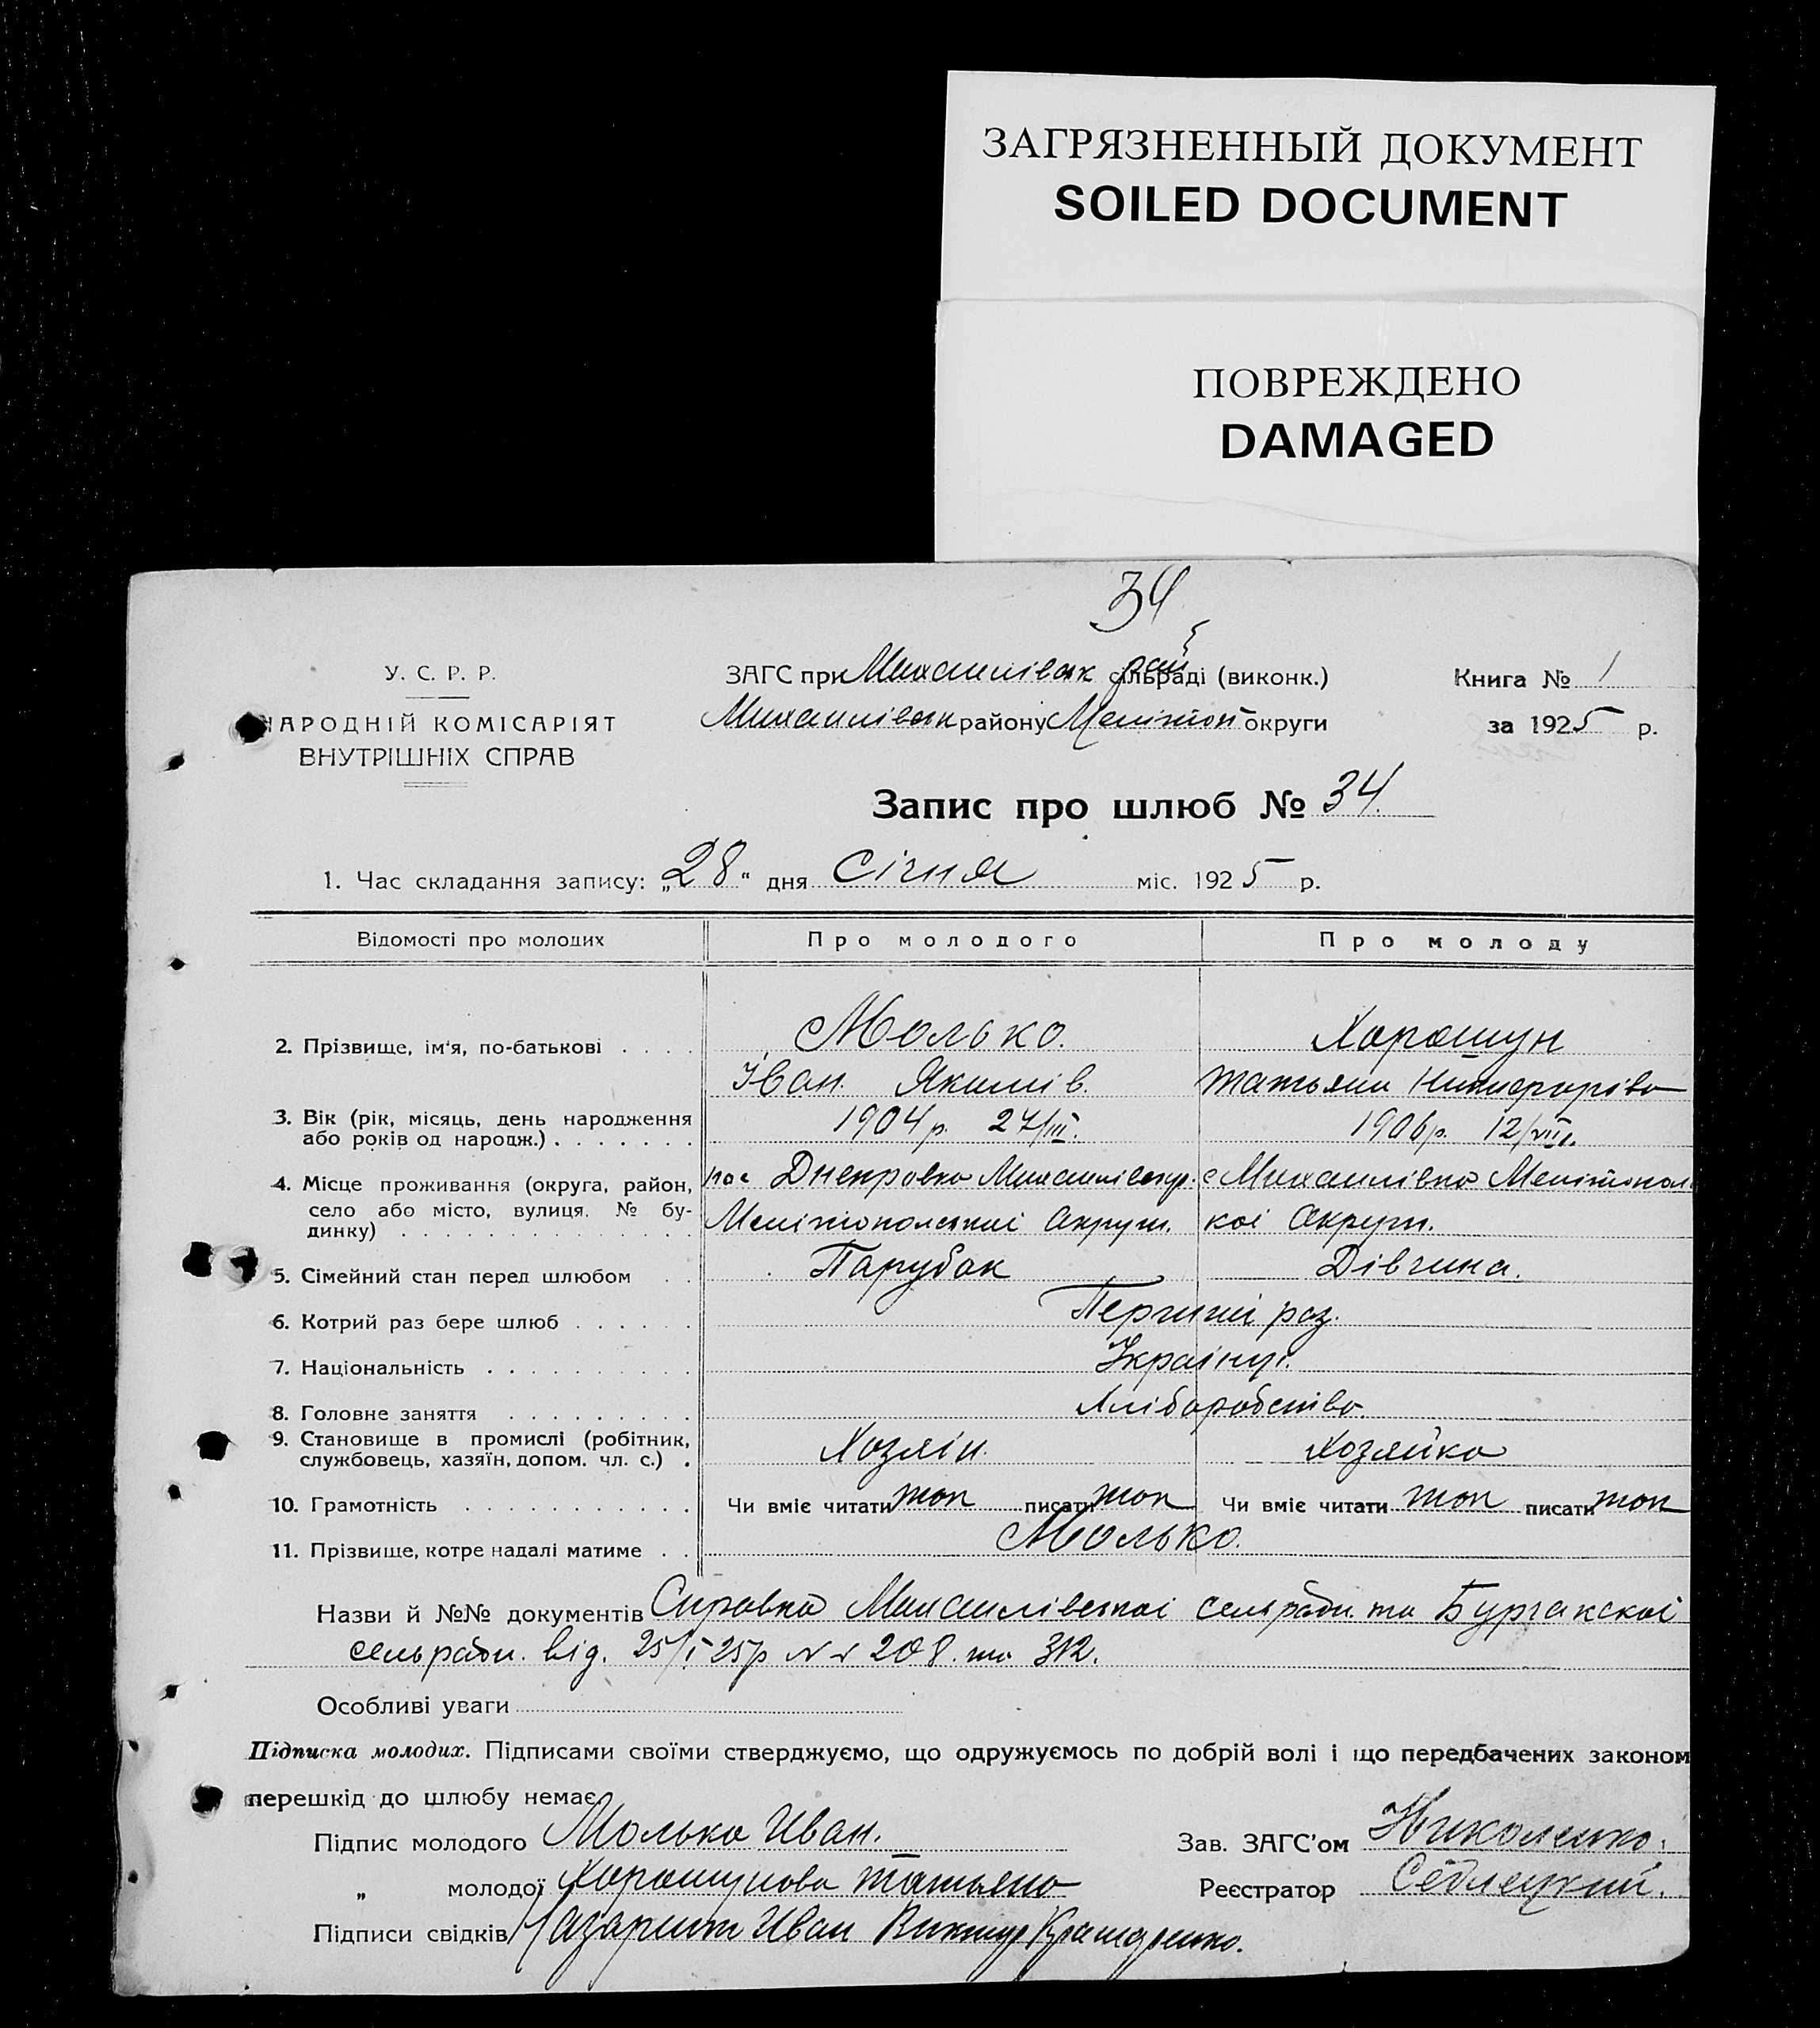 ЗАГРЯЗНЕННЫЙ ДОКУМЕНТ
SOILED DOCUMENT
ПОВРЕЖДЕНО
DAMAGED
34
У. С. Р. Р.
НАРОДНІЙ КОМІСАРІЯТ
ВНУТРІШНІХ СПРАВ
ЗАГС при Михаилівск рай сільраді (виконк.)
Михаилівск району Мелітоп округи
Книга № 1
за 1925 р.
Запис про шлюб № 34.
1. Час складання запису: „28" дня Січня міс. 1925 р.
Відомості про молодих Про молодого Про молоду
2. Прізвище, ім'я, по-батькові Молько. Хорошун
Іван. Якимів. Татьяна Никифоріва
3. Вік (рік, місяць, день народження або років од народж.) 1904 р. 27/III. 1906 р. 12/VII.
4. Місце проживання (округа, район, село або місто, вулиця. № будинку)
пос Днепровка с Михаилівка Мелітопол
Мелітопольскиі Округи. коі Округи.
5. Сімейний стан перед шлюбом Парубок Дівчина.
6. Котрий раз бере шлюб Перший раз.
7. Національність Украінці.
8. Головне заняття Хліборобство.
9. Становище в промислі (робітник, службовець, хазяїн, допом. чл. с.) Хозяін. Хозяйка
10. Грамотність Чи вміє читати так писати так Чи вміє читати так писати так
11. Прізвище, котре надалі матиме Молько.
Назви й №№ документів Справка Михаилівскоі сельради та Бурчакскоі
сельради. від. 25/I 25р № 208. та 312.
Особливі уваги
Підписка молодих. Підписами своїми стверджуємо, що одружуємось по добрій волі і що передбачених законом
перешкід до шлюбу немає.
Підпис молодого Молько Иван.
„ молодої Хорошунова Татьяна
Підписи свідків Иван
Зав. ЗАГС'ом Николенко.
Реєстратор Седлецкий.